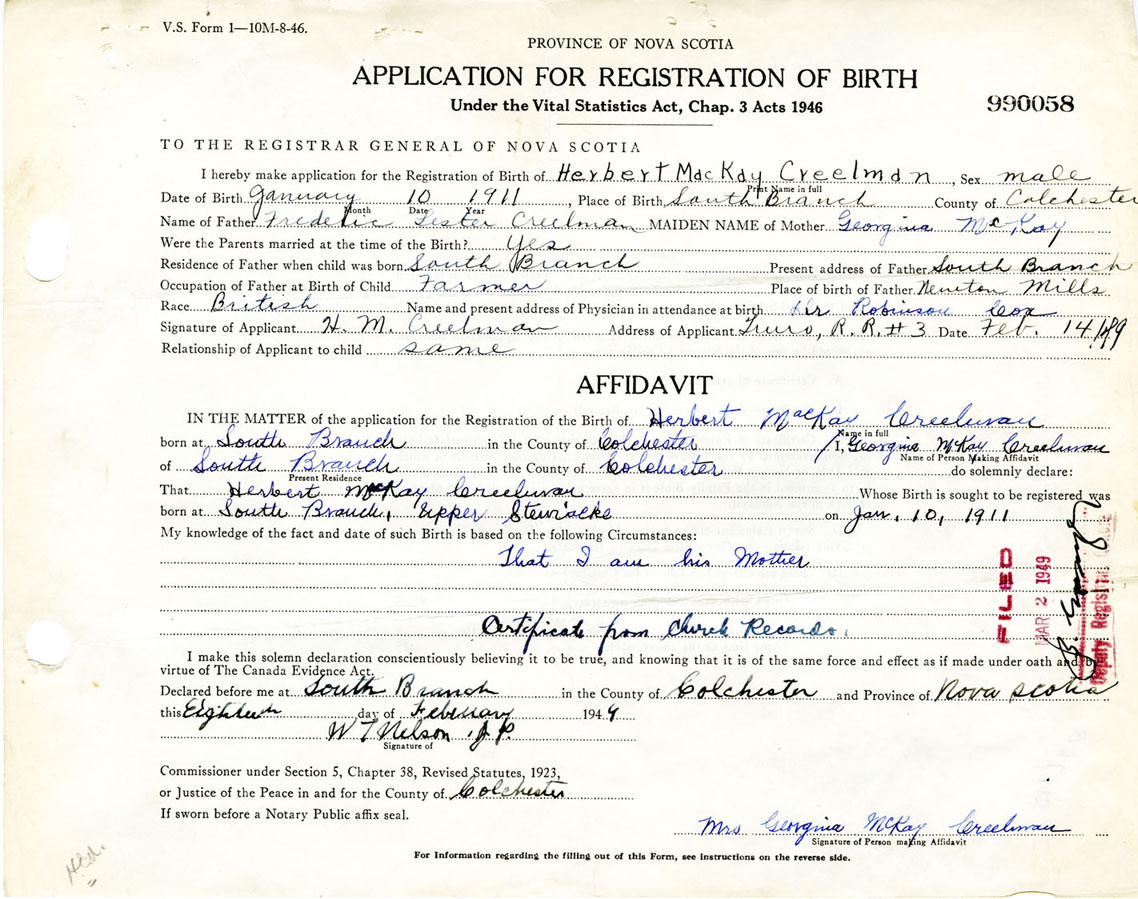 V.S. Form 1—10M-8-46.
PROVINCE OF NOVA SCOTIA
APPLICATION FOR REGISTRATION OF BIRTH
Under the Vital Statistics Act, Chap. 3 Acts 1946
990058
TO THE REGISTRAR GENERAL OF NOVA SCOTIA
I hereby make application for the Registration of Birth of Herbert MacKay Creelman, Sex male
Print Name in full
Date of Birth January 10 1911, Place of Birth South Branch County of Colchester
Month Date Year
Name of Father Frederic Lester Creelman MAIDEN NAME of Mother Georgina McKay
Were the Parents married at the time of the Birth? Yes
Residence of Father when child was born South Branch Present address of Father South Branch
Occupation of Father at Birth of Child Farmer Place of birth of Father Newton Mills
Race British Name and present address of Physician in attendance at birth Dr Robinson Cox
Signature of Applicant H. M. Creelman Address of Applicant Truro, R.R. # 3 Date Feb. 14/49
Relationship of Applicant to child same
AFFIDAVIT
IN THE MATTER of the application for the Registration of the Birth of Herbert MacKay Creelman
Name in full
born at South Branch in the County of Colchester I, Georgina McKay Creelman
Name of Person Making Affidavit
of South Branch in the County of Colchester do solemnly declare:
Present Residence
That Herbert McKay Creelman Whose Birth is sought to be registered was
born at South Branch, Upper Stewiacke on Jan. 10, 1911
My knowledge of the fact and date of such Birth is based on the following Circumstances:
That I am his Mother
Certificate from Church Records.
FILED
MAR 2 1949
Deputy Registrar
I make this solemn declaration conscientiously believing it to be true, and knowing that it is of the same force and effect as if made under oath and by
virtue of The Canada Evidence Act.
Declared before me at South Branch in the County of Colchester and Province of Nova Scotia
this Eighteen day of February 1949
W T Nelson J.P.
Signature of
Commissioner under Section 5, Chapter 38, Revised Statutes, 1923,
or Justice of the Peace in and for the County of Colchester
If sworn before a Notary Public affix seal.
Mrs Georgina McKay Creelman
Signature of Person making Affidavit
For Information regarding the filling out of this Form, see instructions on the reverse side.